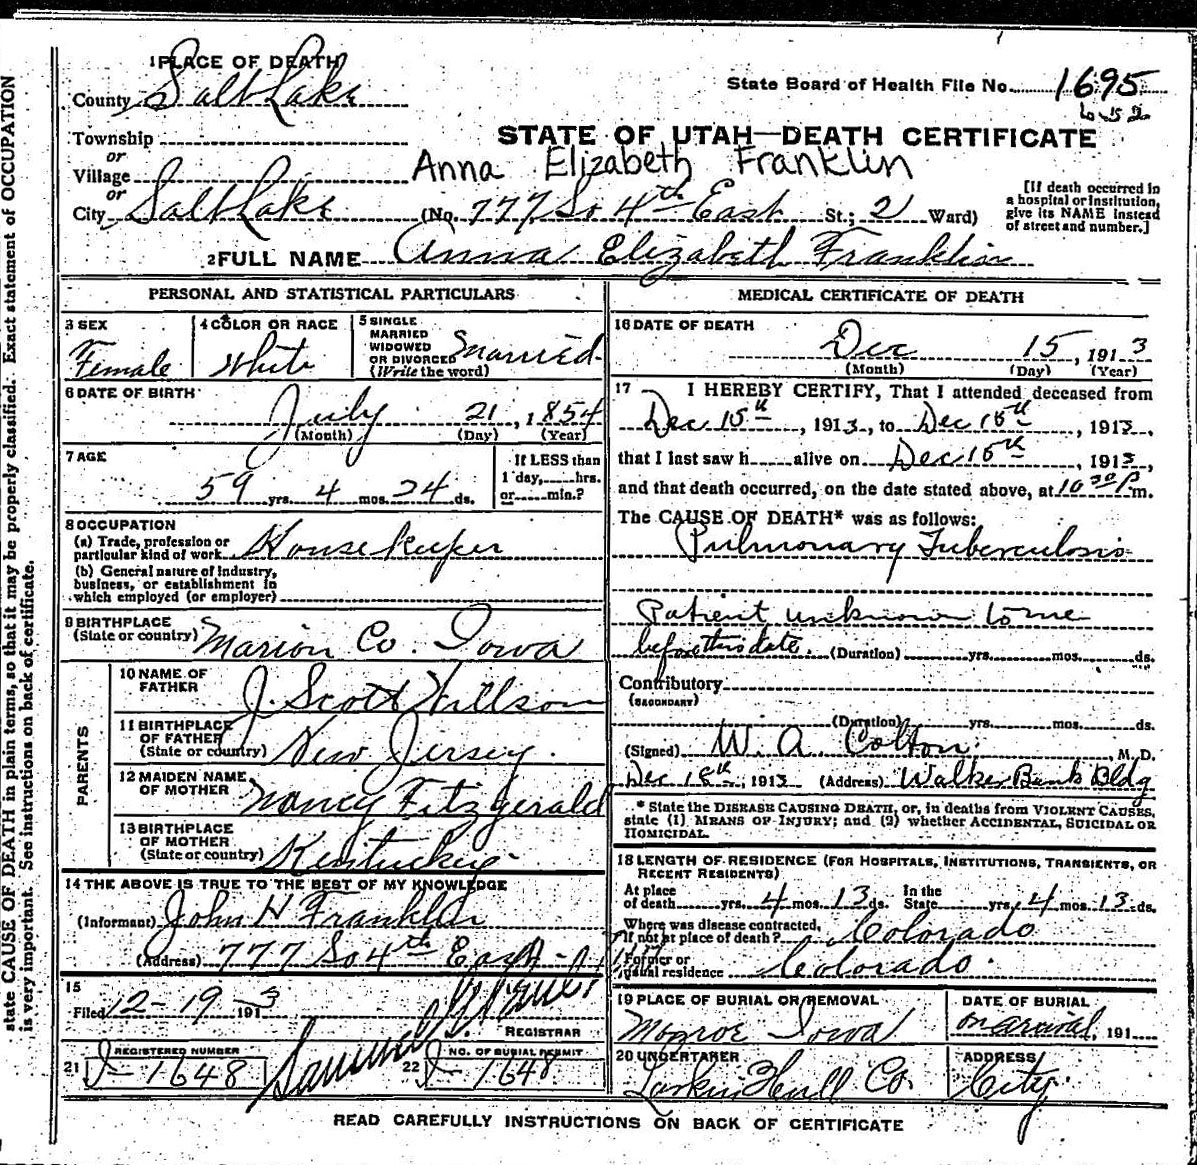 1 PLACE OF DEATH
County Salt Lake
State Board of Health File No. 1695
652
Township
STATE OF UTAH—DEATH CERTIFICATE
or
Village
Anna Elizabeth Franklin
or
City Salt Lake (No. 777 So 4th East St.; 2 Ward)
[If death occurred in a hospital or institution, give its NAME instead of street and number.]
2 FULL NAME Anna Elizabeth Franklin
PERSONAL AND STATISTICAL PARTICULARS
3 SEX
Female
4 COLOR OR RACE
White
5 SINGLE
MARRIED
WIDOWED
OR DIVORCED
(Write the word)
Married
6 DATE OF BIRTH
July 21, 1854
(Month) (Day) (Year)
7 AGE
59 yrs. 4 mos. 24 ds.
If LESS than
1 day,.....hrs.
or.....min.?
8 OCCUPATION
(a) Trade, profession or
particular kind of work Housekeeper
(b) General nature of industry,
business, or establishment in
which employed (or employer)
9 BIRTHPLACE
(State or country) Marion Co. Iowa
PARENTS
10 NAME OF
FATHER J. Scott Willson
11 BIRTHPLACE
OF FATHER
(State or country) New Jersey.
12 MAIDEN NAME
OF MOTHER Nancy Fitzgerald
13 BIRTHPLACE
OF MOTHER
(State or country) Kentucky
14 THE ABOVE IS TRUE TO THE BEST OF MY KNOWLEDGE
(Informant) John H Franklin
(Address) 777 So 4th East
15
Filed 12-19 1913
REGISTRAR
21 REGISTERED NUMBER
1648
22 NO. OF BURIAL PERMIT
1648
MEDICAL CERTIFICATE OF DEATH
16 DATE OF DEATH
Dec 15, 1913
(Month) (Day) (Year)
17 I HEREBY CERTIFY, That I attended deceased from
Dec 15th, 1913, to Dec 15th, 1913,
that I last saw h..... alive on Dec 15th, 1913,
and that death occurred, on the date stated above, at 10 30 P m.
The CAUSE OF DEATH* was as follows:
Pulmonary Tuberculosis
Patient unknown to me
before this date. (Duration) yrs. mos. ds.
Contributory
(SECONDARY)
(Duration) yrs. mos. ds.
(Signed) W. A. Colton, M. D.
Dec 18th, 1913 (Address) Walker Bank Bldg
* State the DISEASE CAUSING DEATH, or, in deaths from VIOLENT CAUSES,
state (1) MEANS OF INJURY; and (2) whether ACCIDENTAL, SUICIDAL OR
HOMICIDAL.
18 LENGTH OF RESIDENCE (FOR HOSPITALS, INSTITUTIONS, TRANSIENTS, OR
RECENT RESIDENTS)
At place
of death yrs. 4 mos. 13 ds.
In the
State yrs. 4 mos. 13 ds.
Where was disease contracted,
If not at place of death? Colorado
Former or
usual residence Colorado.
19 PLACE OF BURIAL OR REMOVAL
Monroe Iowa
DATE OF BURIAL
On arrival, 191
20 UNDERTAKER
Larkin Hull Co.
ADDRESS
City.
READ CAREFULLY INSTRUCTIONS ON BACK OF CERTIFICATE
state CAUSE OF DEATH in plain terms, so that it may be properly classified. Exact statement of OCCUPATION
is very important. See instructions on back of certificate.